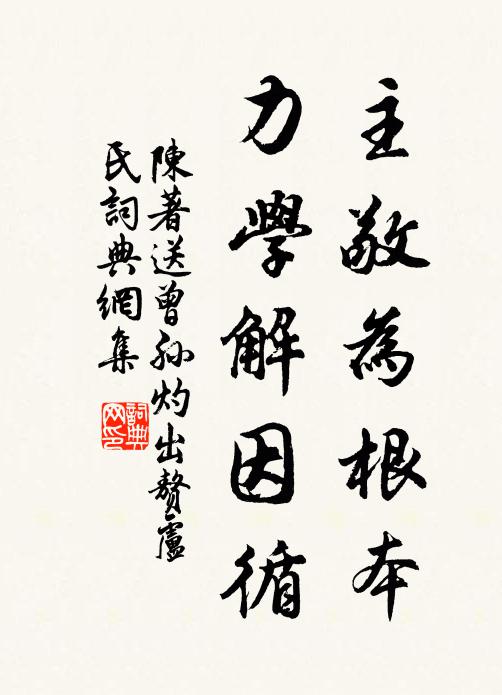 主敬為根本
力學解因循
陳著送曾孙灼出贅盧
民詞典網集
詞典网印